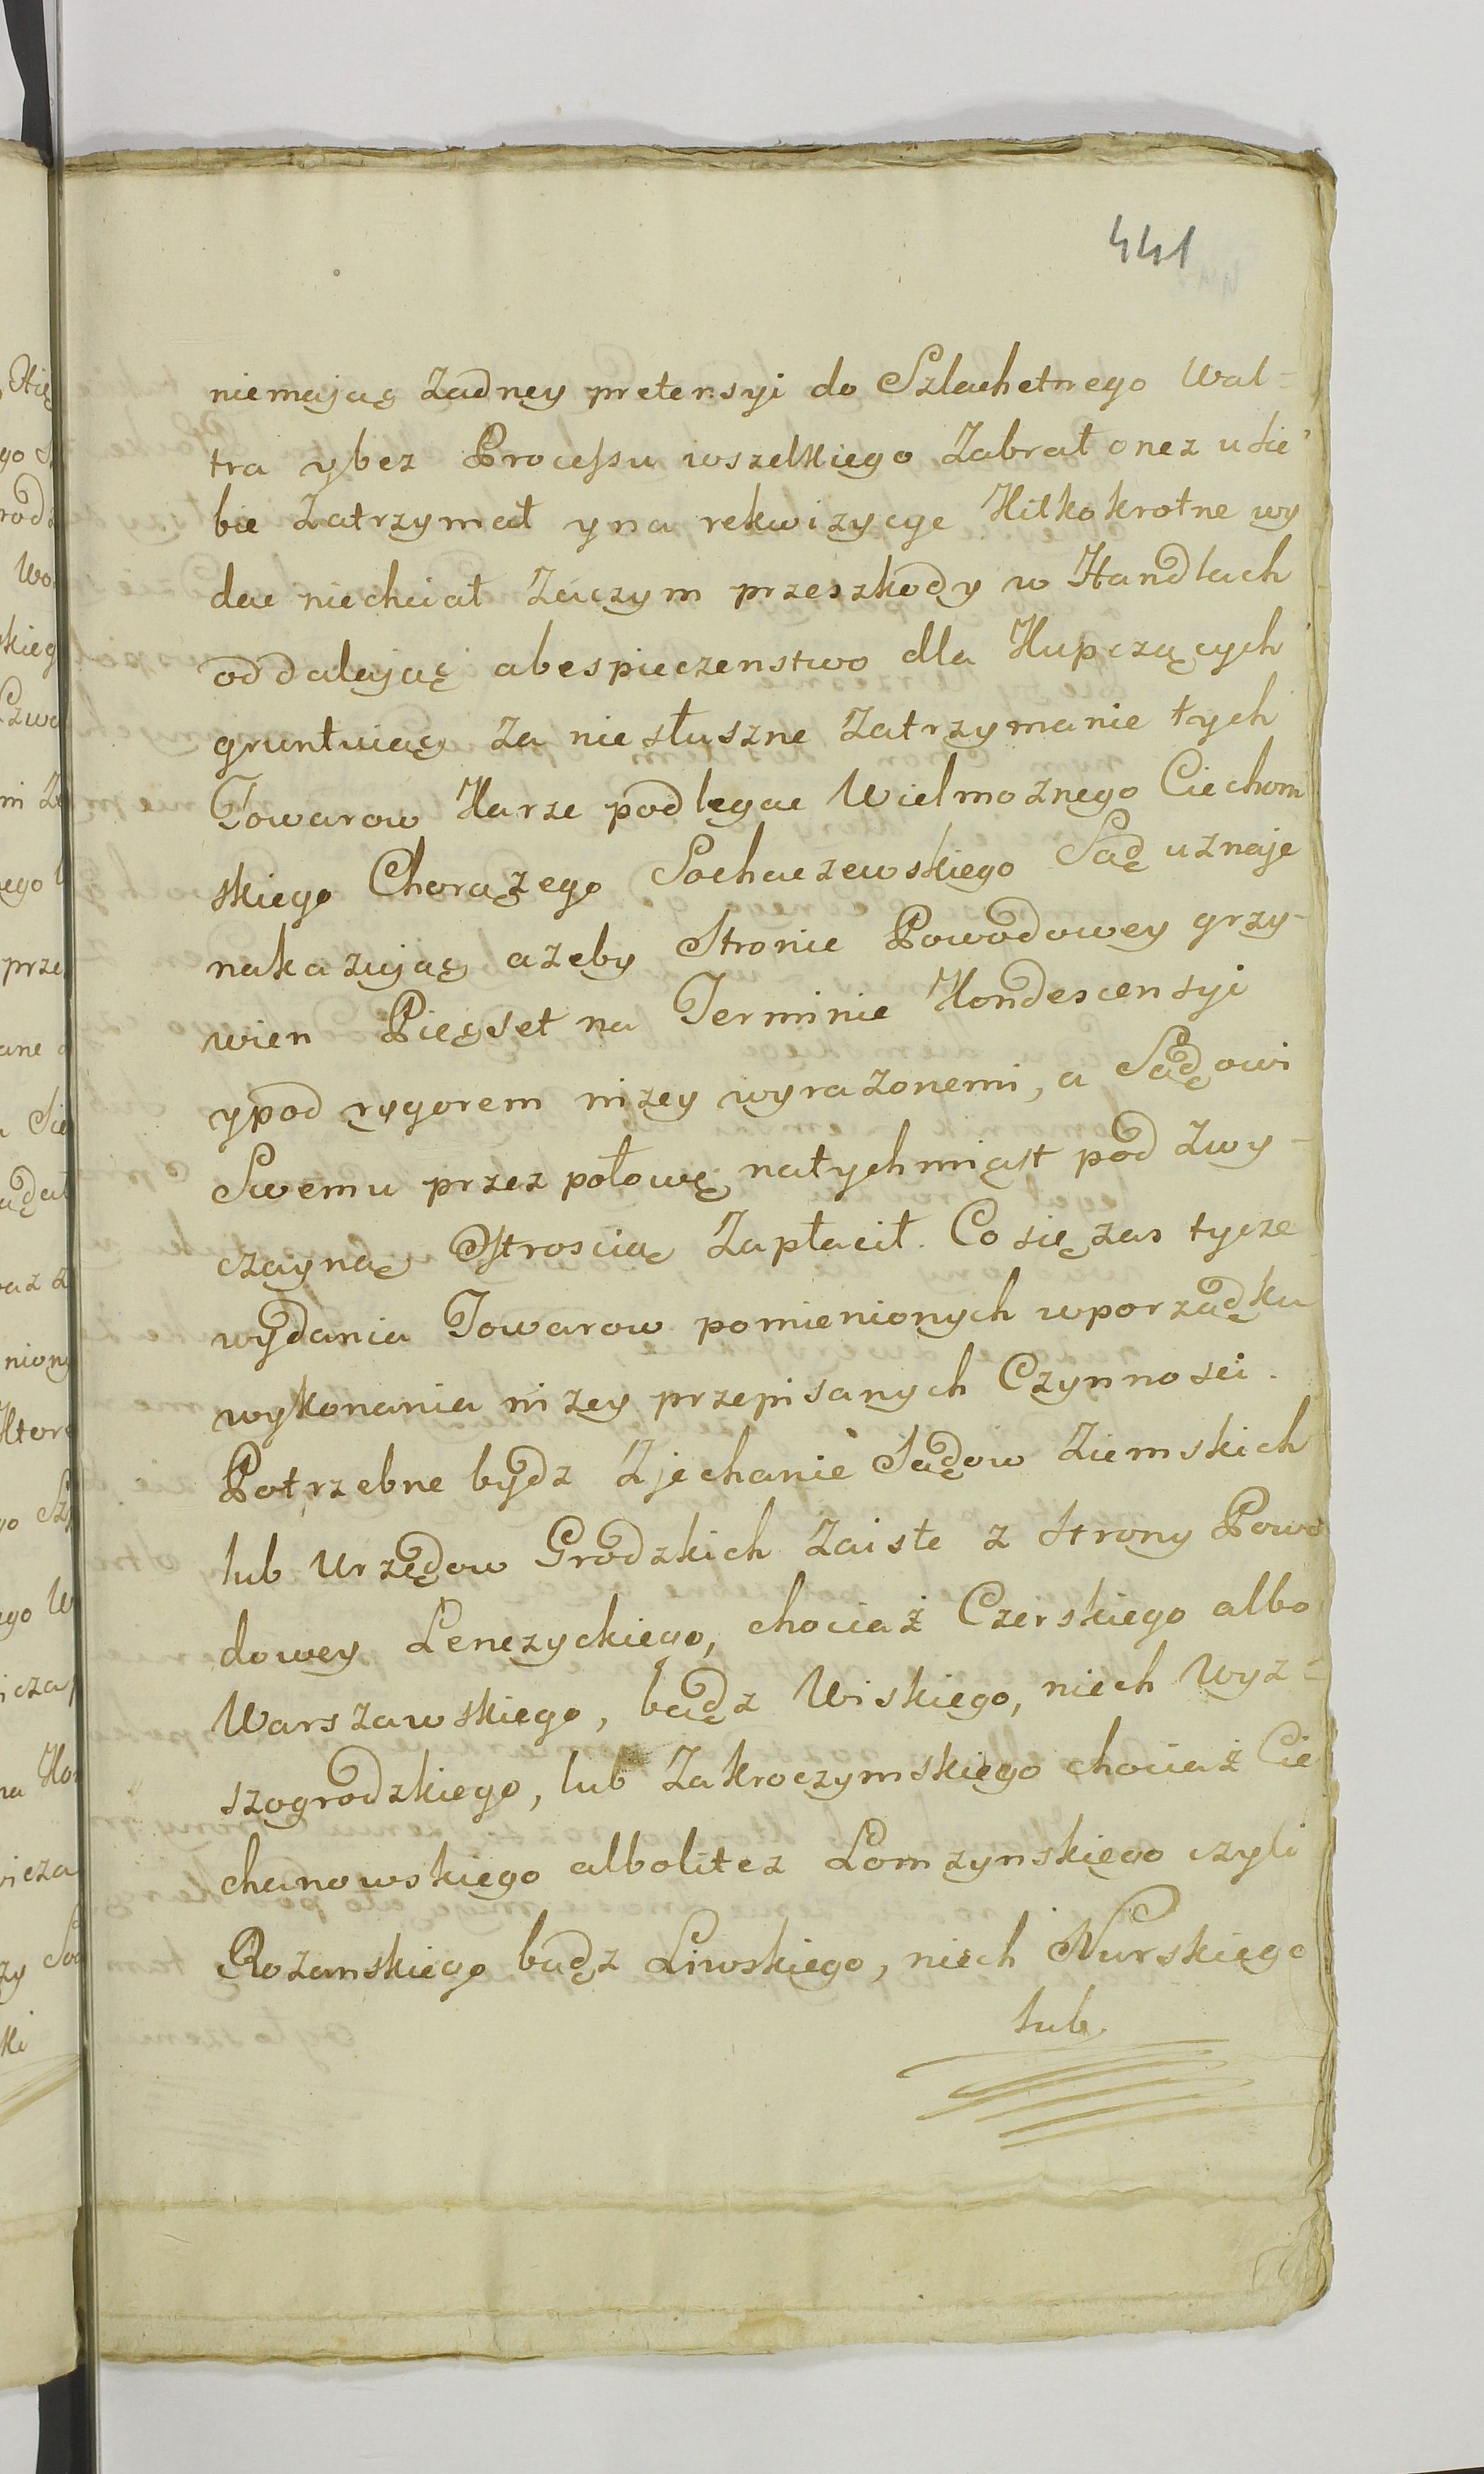 441
niemaiąc żadney pretensyi do Szlachetnego Wal=
tra y bez Processu wszelkiego Zabrał onez u sie
bie Zatrzymał y na rekwizycye Kilkokrotne wy
dac niechciał Zaczym przeszkody w Handlach
oddalaiąc a bespieczenstwo dla Kupczących
gruntuiąc za niesłuszne Zatrzymanie tych
Towarow Karze podlegac Wielmoznego Ciechom
skiego Chorązego Sochaczewskiego Sąd uznaje
nakazując azeby Stronie Powodowey grzy-
wien Pięcset na Terminie Kondescensyi
y pod rygorem nizey wyrazonemi, a Sądowi
Swemu przez połowę natychmiast pod Zwy-
czayną Ostroscią Zapłacił. Co się zas tycze
wydania Towarow pomienionych w porządku
wykonania nizey przepisanych Czynnosci.
Potrzebne bydz Zjechanie Sądow Ziemskich
lub Urzędow Grodzkich Zaiste z Strony Powo
dowey Lenczyckiego, chociaż Czerskiego albo
Warszawskiego, bądz Wiskiego, niech Wyz=
szogrodzkiego, lub Zakroczymskiego chociaż Cie
chanowskiego albolitez Lomzynskiego czyli
Rozanskiego bądz Liwskiego, niech Nurskiego
lub.